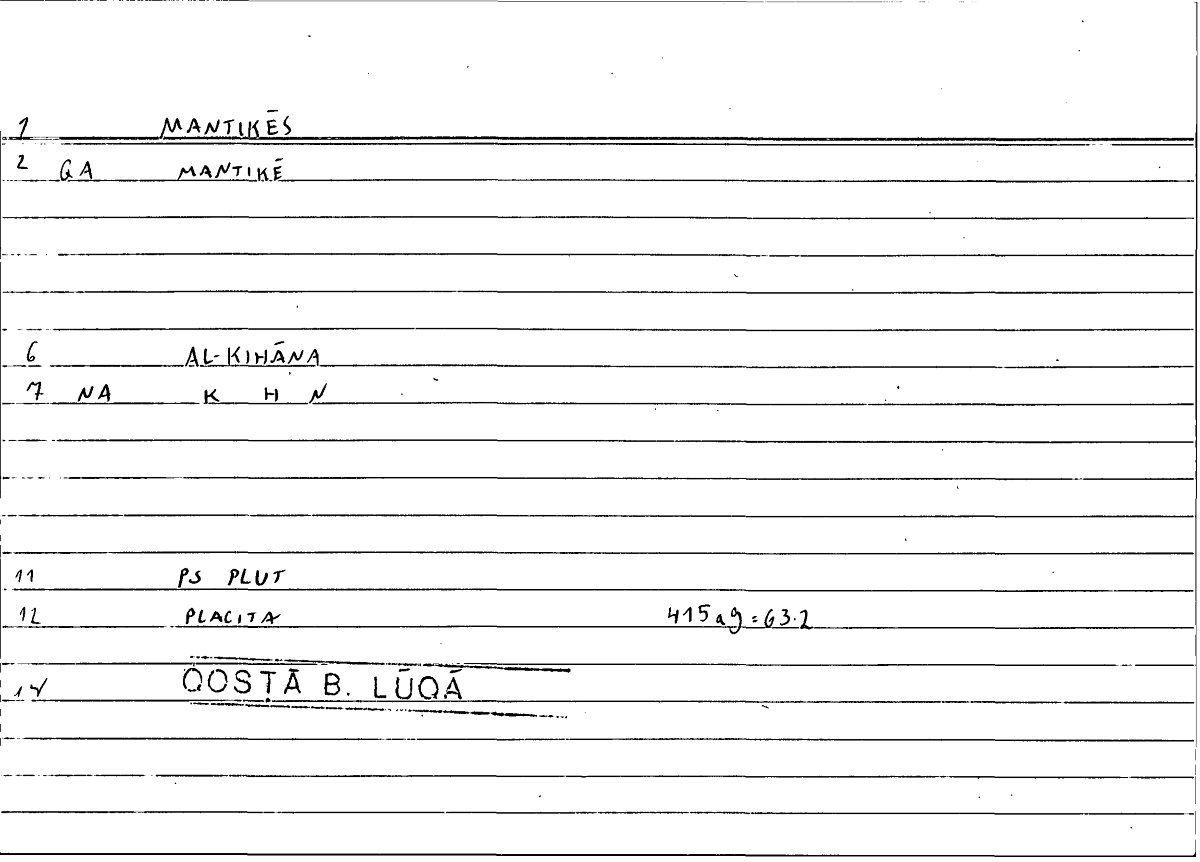 1 MANTIKĒS
2 GA MANTIKĒ
6 AL-KIHĀNA
7 NA K H N
11 PS PLUT
12 PLACITA 415a9=63.2
14 QOSṬĀ B. LŪQĀ